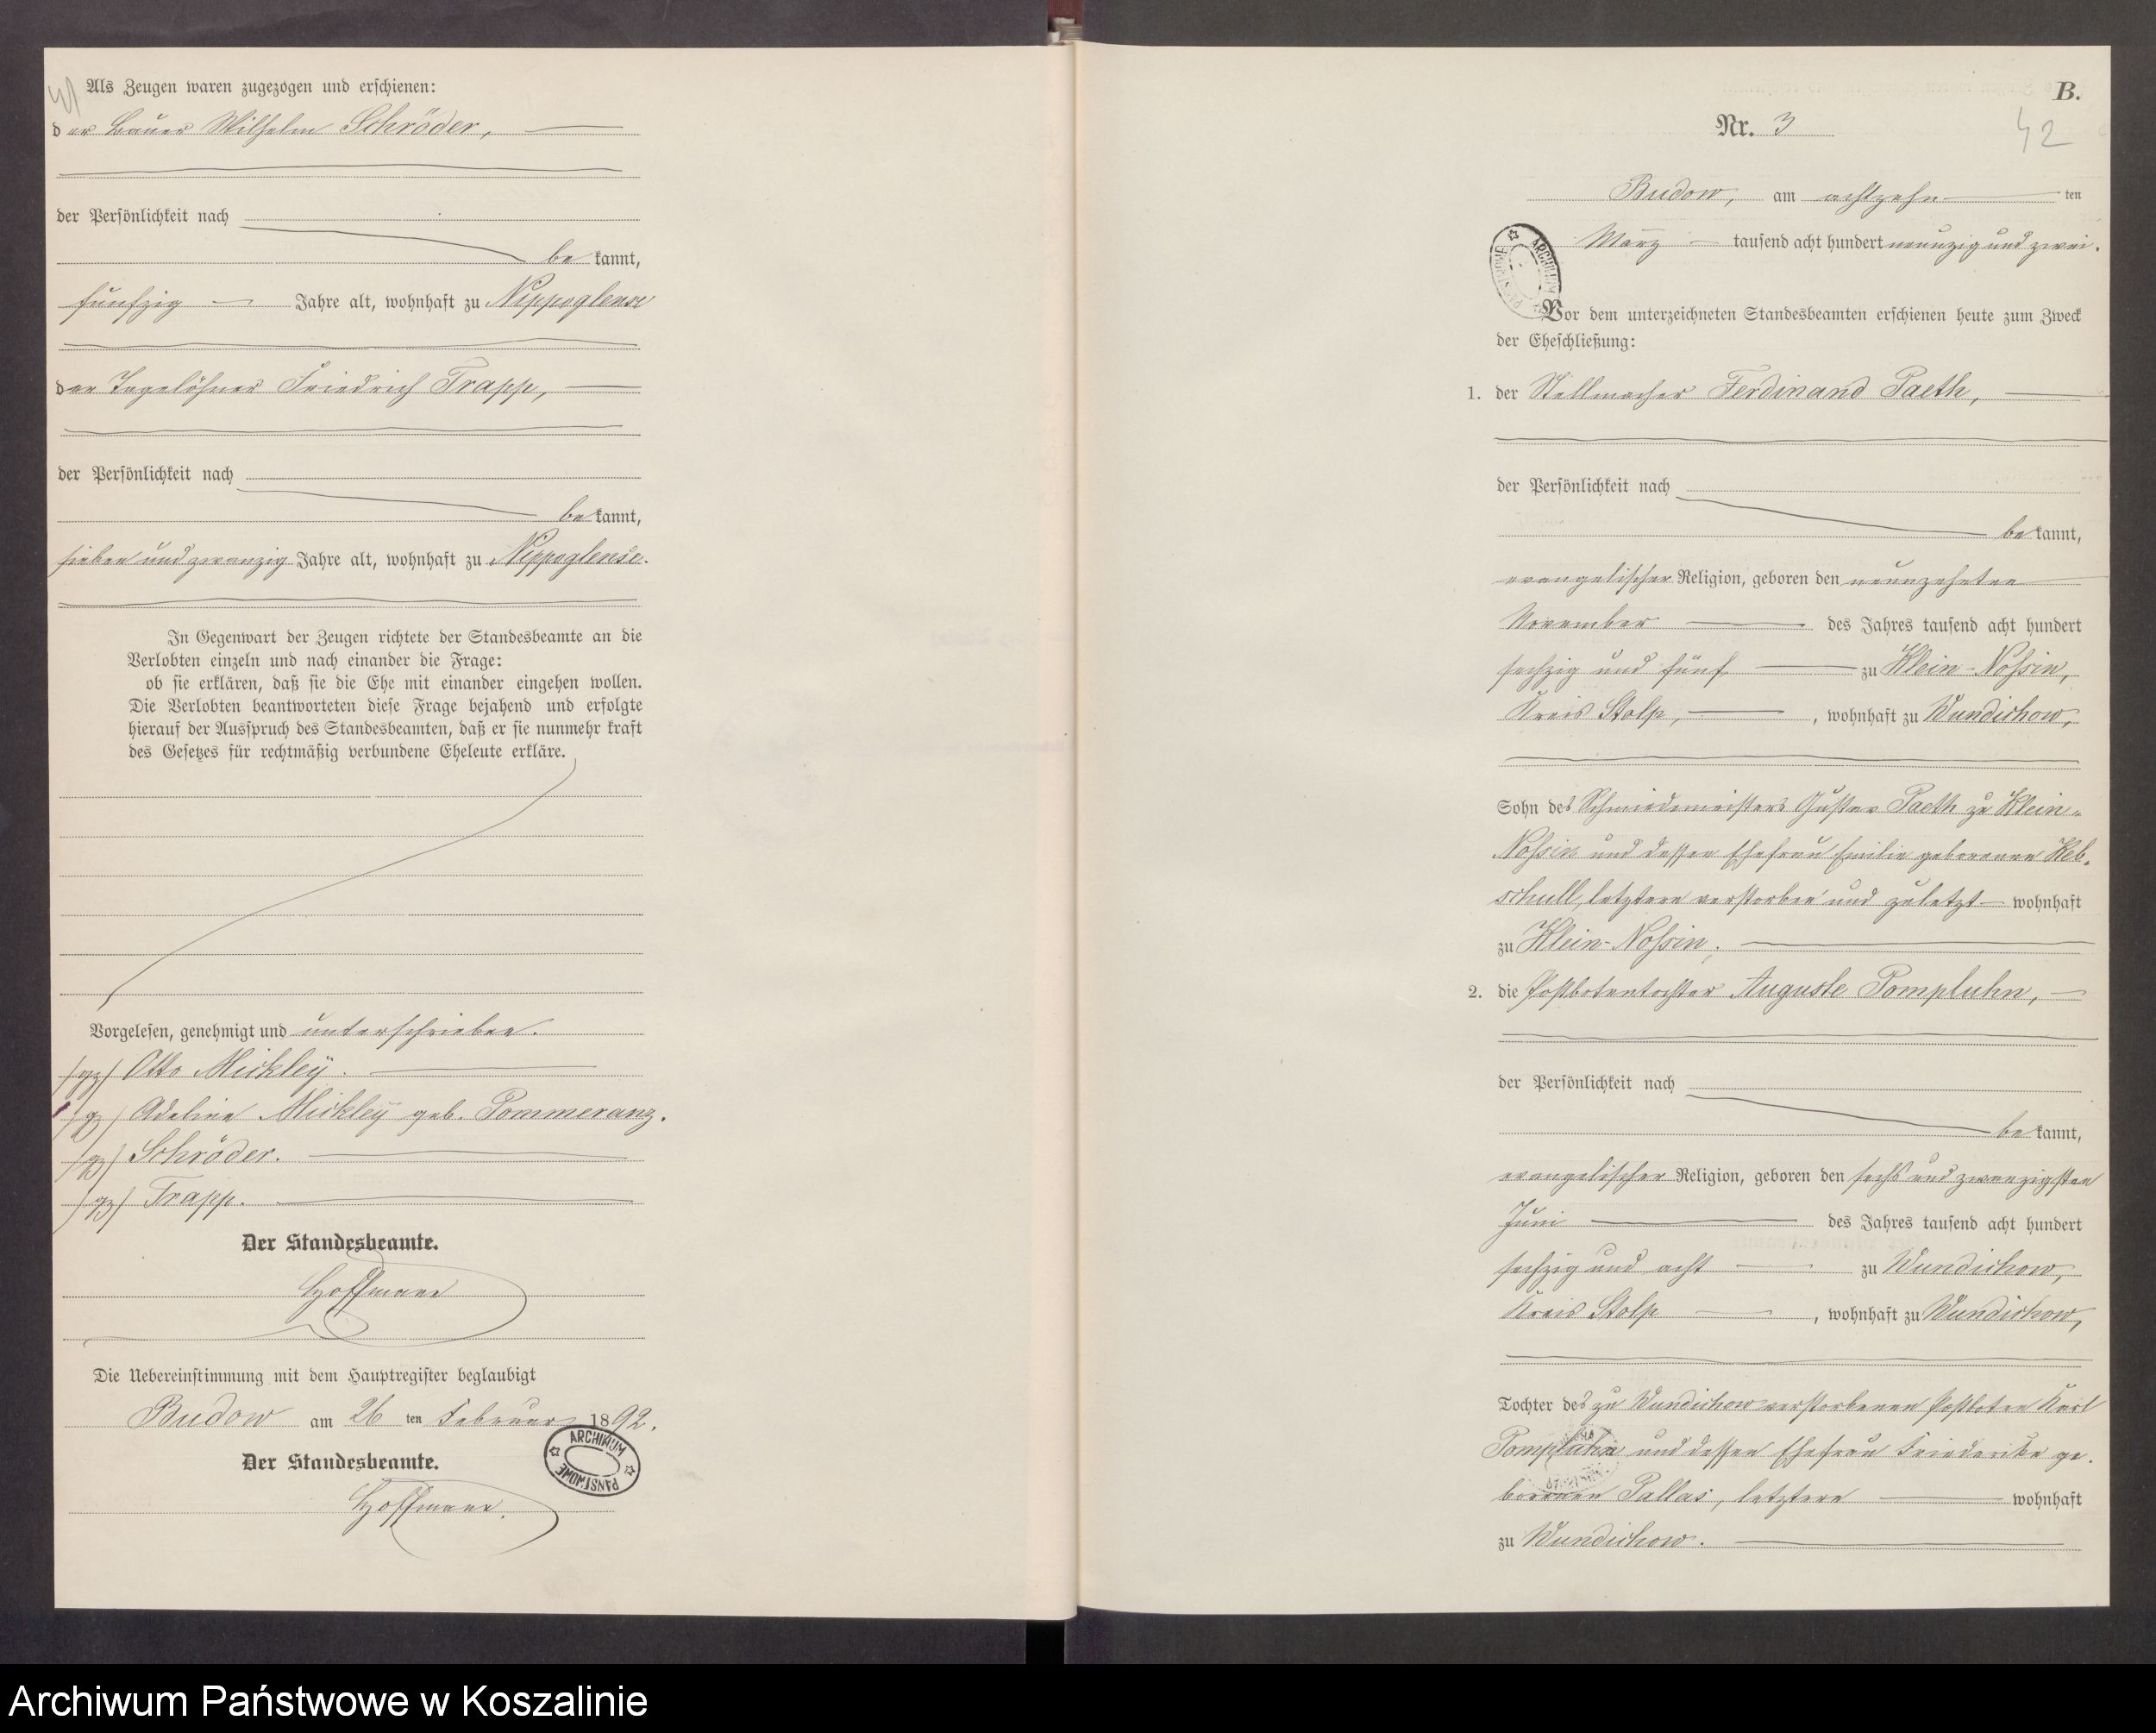 Als Zeugen waren zugezogen und erschienen:
der Bauer Wilhelm Schröder,
der Persönlichkeit nach
bekannt,
fünfzig Jahre alt, wohnhaft zu Nippoglense
der Tagelöhner Friedrich Trapp,
der Persönlichkeit nach
bekannt,
sieben und zwanzig Jahre alt, wohnhaft zu Nippoglense.
In Gegenwart der Zeugen richtete der Standesbeamte an die
Verlobten einzeln und nach einander die Frage:
ob sie erklären, daß sie die Ehe mit einander eingehen wollen.
Die Verlobten beantworteten diese Frage bejahend und erfolgte
hierauf der Ausspruch des Standesbeamten, daß er sie nunmehr kraft
des Gesetzes für rechtmäßig verbundene Eheleute erkläre.
Vorgelesen, genehmigt und unterschrieben.
/gz/ Otto Mickley.
/gz/ Adeline Mickley geb. Pommeranz.
/gz/ Schröder.
/gz/ Trapp.
Der Standesbeamte.
Hoffmann
Die Uebereinstimmung mit dem Hauptregister beglaubigt
Budow am 26 ten Februar 1892.
Der Standesbeamte.
Hoffmann.
ARCHIWUM PAŃSTWOWE
B.
Nr. 3
42
Budow, am achtzehn ten
März tausend acht hundert neunzig und zwei.
ARCHIWUM PAŃSTWOWE
Vor dem unterzeichneten Standesbeamten erschienen heute zum Zweck
der Eheschließung:
1. der Stellmacher Ferdinand Paeth,
der Persönlichkeit nach
bekannt,
evangelischer Religion, geboren den neunzehnten
November des Jahres tausend acht hundert
sechzig und fünf zu Klein-Nossin,
Kreis Stolp, , wohnhaft zu Wundichow,
Sohn des Schmiedemeisters Gustav Paeth zu Klein-
Nossin und dessen Ehefrau Emilie geborenen Keb-
schull, letztere verstorben und zuletzt wohnhaft
zu Klein-Nossin;
2. die Postbotentochter Auguste Pompluhn,
der Persönlichkeit nach
bekannt,
evangelischer Religion, geboren den sechs und zwanzigsten
Juni des Jahres tausend acht hundert
sechzig und acht zu Wundichow,
Kreis Stolp , wohnhaft zu Wundichow,
Tochter des zu Wundichow verstorbenen Postboten Karl
Pompluhn und dessen Ehefrau Friederike ge-
borenen Pallas, letztere wohnhaft
zu Wundichow.
Archiwum Państwowe w Koszalinie